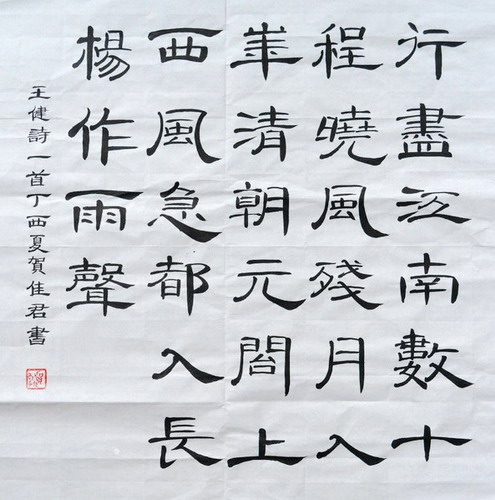 行盡江南數十
程曉風殘月入
華清朝元閣上
西風急都入長
楊作雨聲
王健詩一首丁酉夏賀佳君書